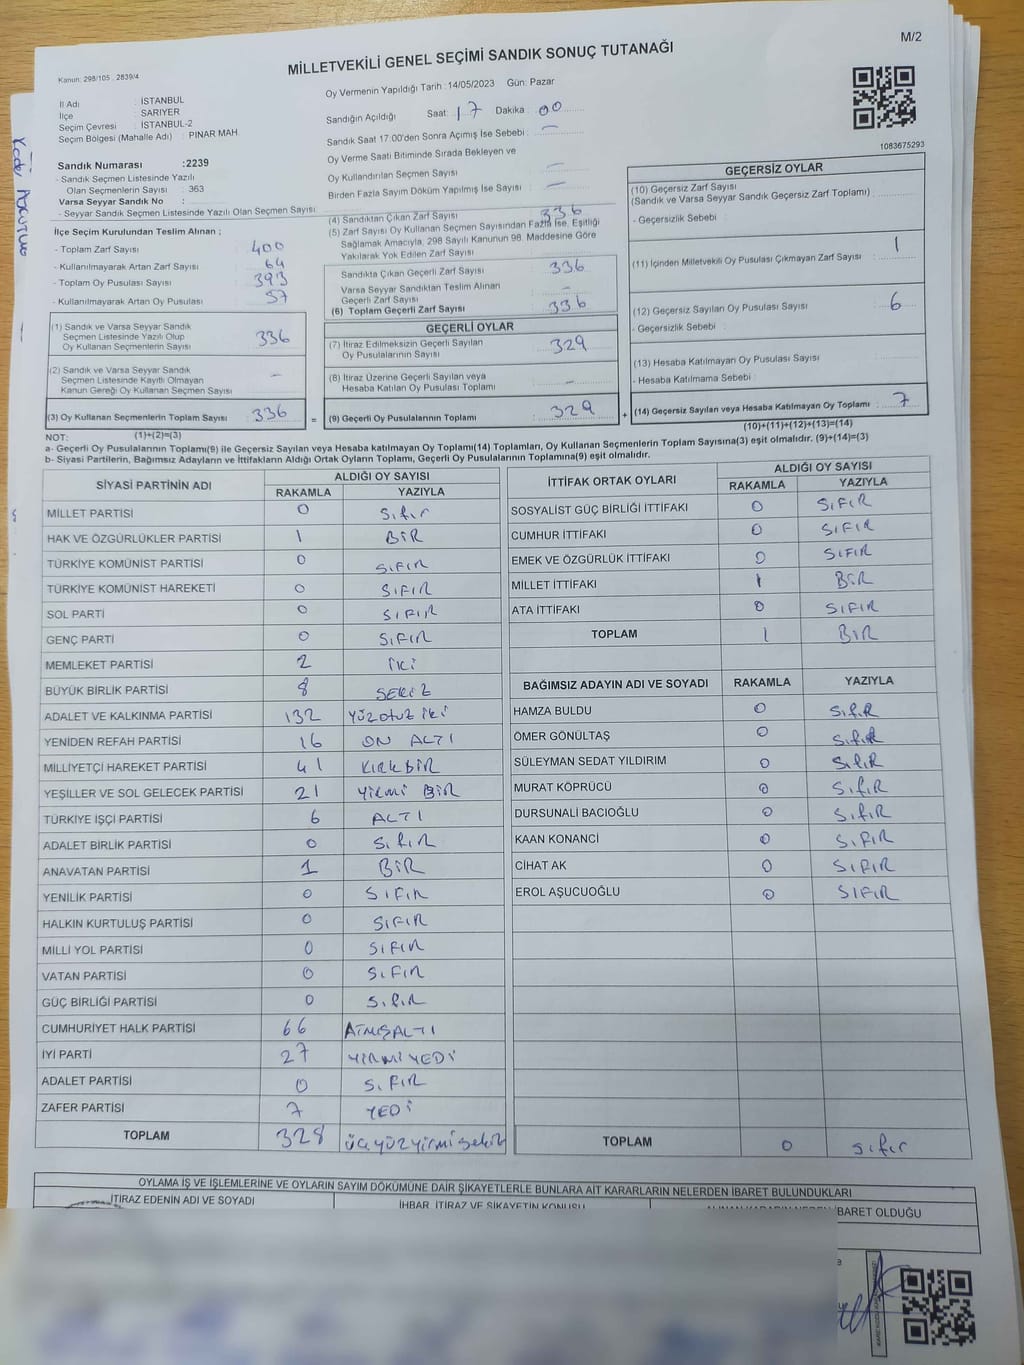 M/2
MİLLETVEKİLİ GENEL SEÇİMİ SANDIK SONUÇ TUTANAĞI
Kanun: 298/105 , 2839/4
İl Adı : İSTANBUL
İlçe : SARIYER
Seçim Çevresi : İSTANBUL-2
Seçim Bölgesi (Mahalle Adı) : PINAR MAH.
Sandık Numarası :2239
- Sandık Seçmen Listesinde Yazılı
Olan Seçmenlerin Sayısı : 363
Varsa Seyyar Sandık No :
- Seyyar Sandık Seçmen Listesinde Yazılı Olan Seçmen Sayısı :
İlçe Seçim Kurulundan Teslim Alınan ;
- Toplam Zarf Sayısı : 400
- Kullanılmayarak Artan Zarf Sayısı : 64
- Toplam Oy Pusulası Sayısı : 393
- Kullanılmayarak Artan Oy Pusulası : 57
(1) Sandık ve Varsa Seyyar Sandık
Seçmen Listesinde Yazılı Olup
Oy Kullanan Seçmenlerin Sayısı : 336
(2) Sandık ve Varsa Seyyar Sandık
Seçmen Listesinde Kayıtlı Olmayan
Kanun Gereği Oy Kullanan Seçmen Sayısı : -
(3) Oy Kullanan Seçmenlerin Toplam Sayısı : 336
(1)+(2)=(3)
Oy Vermenin Yapıldığı Tarih : 14/05/2023 Gün: Pazar
Sandığın Açıldığı Saat: 17 Dakika : 00
Sandık Saat 17:00'den Sonra Açımış İse Sebebi : -
Oy Verme Saati Bitiminde Sırada Bekleyen ve
Oy Kullandırılan Seçmen Sayısı : -
Birden Fazla Sayım Döküm Yapılmış İse Sayısı : -
(4) Sandıktan Çıkan Zarf Sayısı : 336
(5) Zarf Sayısı Oy Kullanan Seçmen Sayısından Fazla İse, Eşitliği
Sağlamak Amacıyla, 298 Sayılı Kanunun 98. Maddesine Göre
Yakılarak Yok Edilen Zarf Sayısı :
Sandıkta Çıkan Geçerli Zarf Sayısı : 336
Varsa Seyyar Sandıktan Teslim Alınan
Geçerli Zarf Sayısı : -
(6) Toplam Geçerli Zarf Sayısı : 336
GEÇERLİ OYLAR
(7) İtiraz Edilmeksizin Geçerli Sayılan
Oy Pusulalarının Sayısı : 329
(8) İtiraz Üzerine Geçerli Sayılan veya
Hesaba Katılan Oy Pusulası Toplamı : -
= (9) Geçerli Oy Pusulalarının Toplamı : 329
1083675293
GEÇERSİZ OYLAR
(10) Geçersiz Zarf Sayısı
(Sandık ve Varsa Seyyar Sandık Geçersiz Zarf Toplamı) :
- Geçersizlik Sebebi :
(11) İçinden Milletvekili Oy Pusulası Çıkmayan Zarf Sayısı : 1
(12) Geçersiz Sayılan Oy Pusulası Sayısı : 6
- Geçersizlik Sebebi :
(13) Hesaba Katılmayan Oy Pusulası Sayısı :
- Hesaba Katılmama Sebebi :
+ (14) Geçersiz Sayılan veya Hesaba Katılmayan Oy Toplamı : 7
(10)+(11)+(12)+(13)=(14)
NOT:
a- Geçerli Oy Pusulalarının Toplamı(9) ile Geçersiz Sayılan veya Hesaba katılmayan Oy Toplamı(14) Toplamları, Oy Kullanan Seçmenlerin Toplam Sayısına(3) eşit olmalıdır. (9)+(14)=(3)
b- Siyasi Partilerin, Bağımsız Adayların ve İttifakların Aldığı Ortak Oyların Toplamı, Geçerli Oy Pusulalarının Toplamına(9) eşit olmalıdır.
SİYASİ PARTİNİN ADI ALDIĞI OY SAYISI
RAKAMLA YAZIYLA
MİLLET PARTİSİ 0 Sıfır
HAK VE ÖZGÜRLÜKLER PARTİSİ 1 BİR
TÜRKİYE KOMÜNİST PARTİSİ 0 SIFIR
TÜRKİYE KOMÜNİST HAREKETİ 0 SIFIR
SOL PARTİ 0 SIFIR
GENÇ PARTİ 0 SIFIR
MEMLEKET PARTİSİ 2 İKİ
BÜYÜK BİRLİK PARTİSİ 8 SEKİZ
ADALET VE KALKINMA PARTİSİ 132 YÜZOTUZ İKİ
YENİDEN REFAH PARTİSİ 16 ON ALTI
MİLLİYETÇİ HAREKET PARTİSİ 41 KIRKBİR
YEŞİLLER VE SOL GELECEK PARTİSİ 21 YİRMİ BİR
TÜRKİYE İŞÇİ PARTİSİ 6 ALTI
ADALET BİRLİK PARTİSİ 0 SIfIR
ANAVATAN PARTİSİ 1 BİR
YENİLİK PARTİSİ 0 SIFIR
HALKIN KURTULUŞ PARTİSİ 0 SIFIR
MİLLİ YOL PARTİSİ 0 SIFIR
VATAN PARTİSİ 0 SIFIR
GÜÇ BİRLİĞİ PARTİSİ 0 SIfIR
CUMHURİYET HALK PARTİSİ 66 ATMIŞALTI
İYİ PARTİ 27 YİRMİYEDİ
ADALET PARTİSİ 0 SIFIR
ZAFER PARTİSİ 7 YEDİ
TOPLAM 328 üçyüzyirmisekiz
İTTİFAK ORTAK OYLARI ALDIĞI OY SAYISI
RAKAMLA YAZIYLA
SOSYALİST GÜÇ BİRLİĞİ İTTİFAKI 0 SIFIR
CUMHUR İTTİFAKI 0 SIFIR
EMEK VE ÖZGÜRLÜK İTTİFAKI 0 SIFIR
MİLLET İTTİFAKI 1 BİR
ATA İTTİFAKI 0 SIFIR
TOPLAM 1 BİR
BAĞIMSIZ ADAYIN ADI VE SOYADI RAKAMLA YAZIYLA
HAMZA BULDU 0 SIfIR
ÖMER GÖNÜLTAŞ 0 SIfIR
SÜLEYMAN SEDAT YILDIRIM 0 SIfIR
MURAT KÖPRÜCÜ 0 SIfIR
DURSUNALİ BACIOĞLU 0 SIfIR
KAAN KONANCİ 0 SIFIR
CİHAT AK 0 SIFIR
EROL AŞUCUOĞLU 0 SIFIR
TOPLAM 0 sıfır
OYLAMA İŞ VE İŞLEMLERİNE VE OYLARIN SAYIM DÖKÜMÜNE DAİR ŞİKAYETLERLE BUNLARA AİT KARARLARIN NELERDEN İBARET BULUNDUKLARI
İTİRAZ EDENİN ADI VE SOYADI
İHBAR, İTİRAZ VE ŞİKAYETİN KONUSU
İBARET OLDUĞU